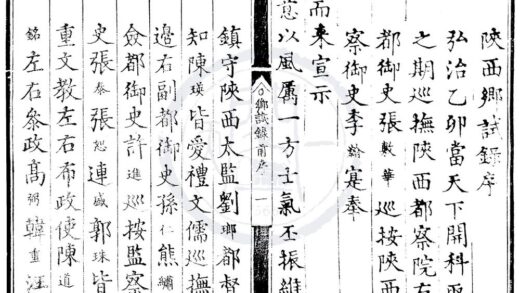 陝西鄉試錄序
弘治乙卯當天下開科
之期巡撫陝西都察院右
都御史張敷華巡按陝西
察御史李瀚寔奉
而來宣示
意以風厲一方士氣丕振維
鄉試錄前序 一
鎮守陝西太監劉瑯都督
知陳瑛皆愛禮文儒巡撫
邊右副都御史孫仁熊繡
僉都御史許進巡按監察
史張泰張恕連盛郭珠皆
重文教左右布政使陳道
銘左右參政高弼韓重汪